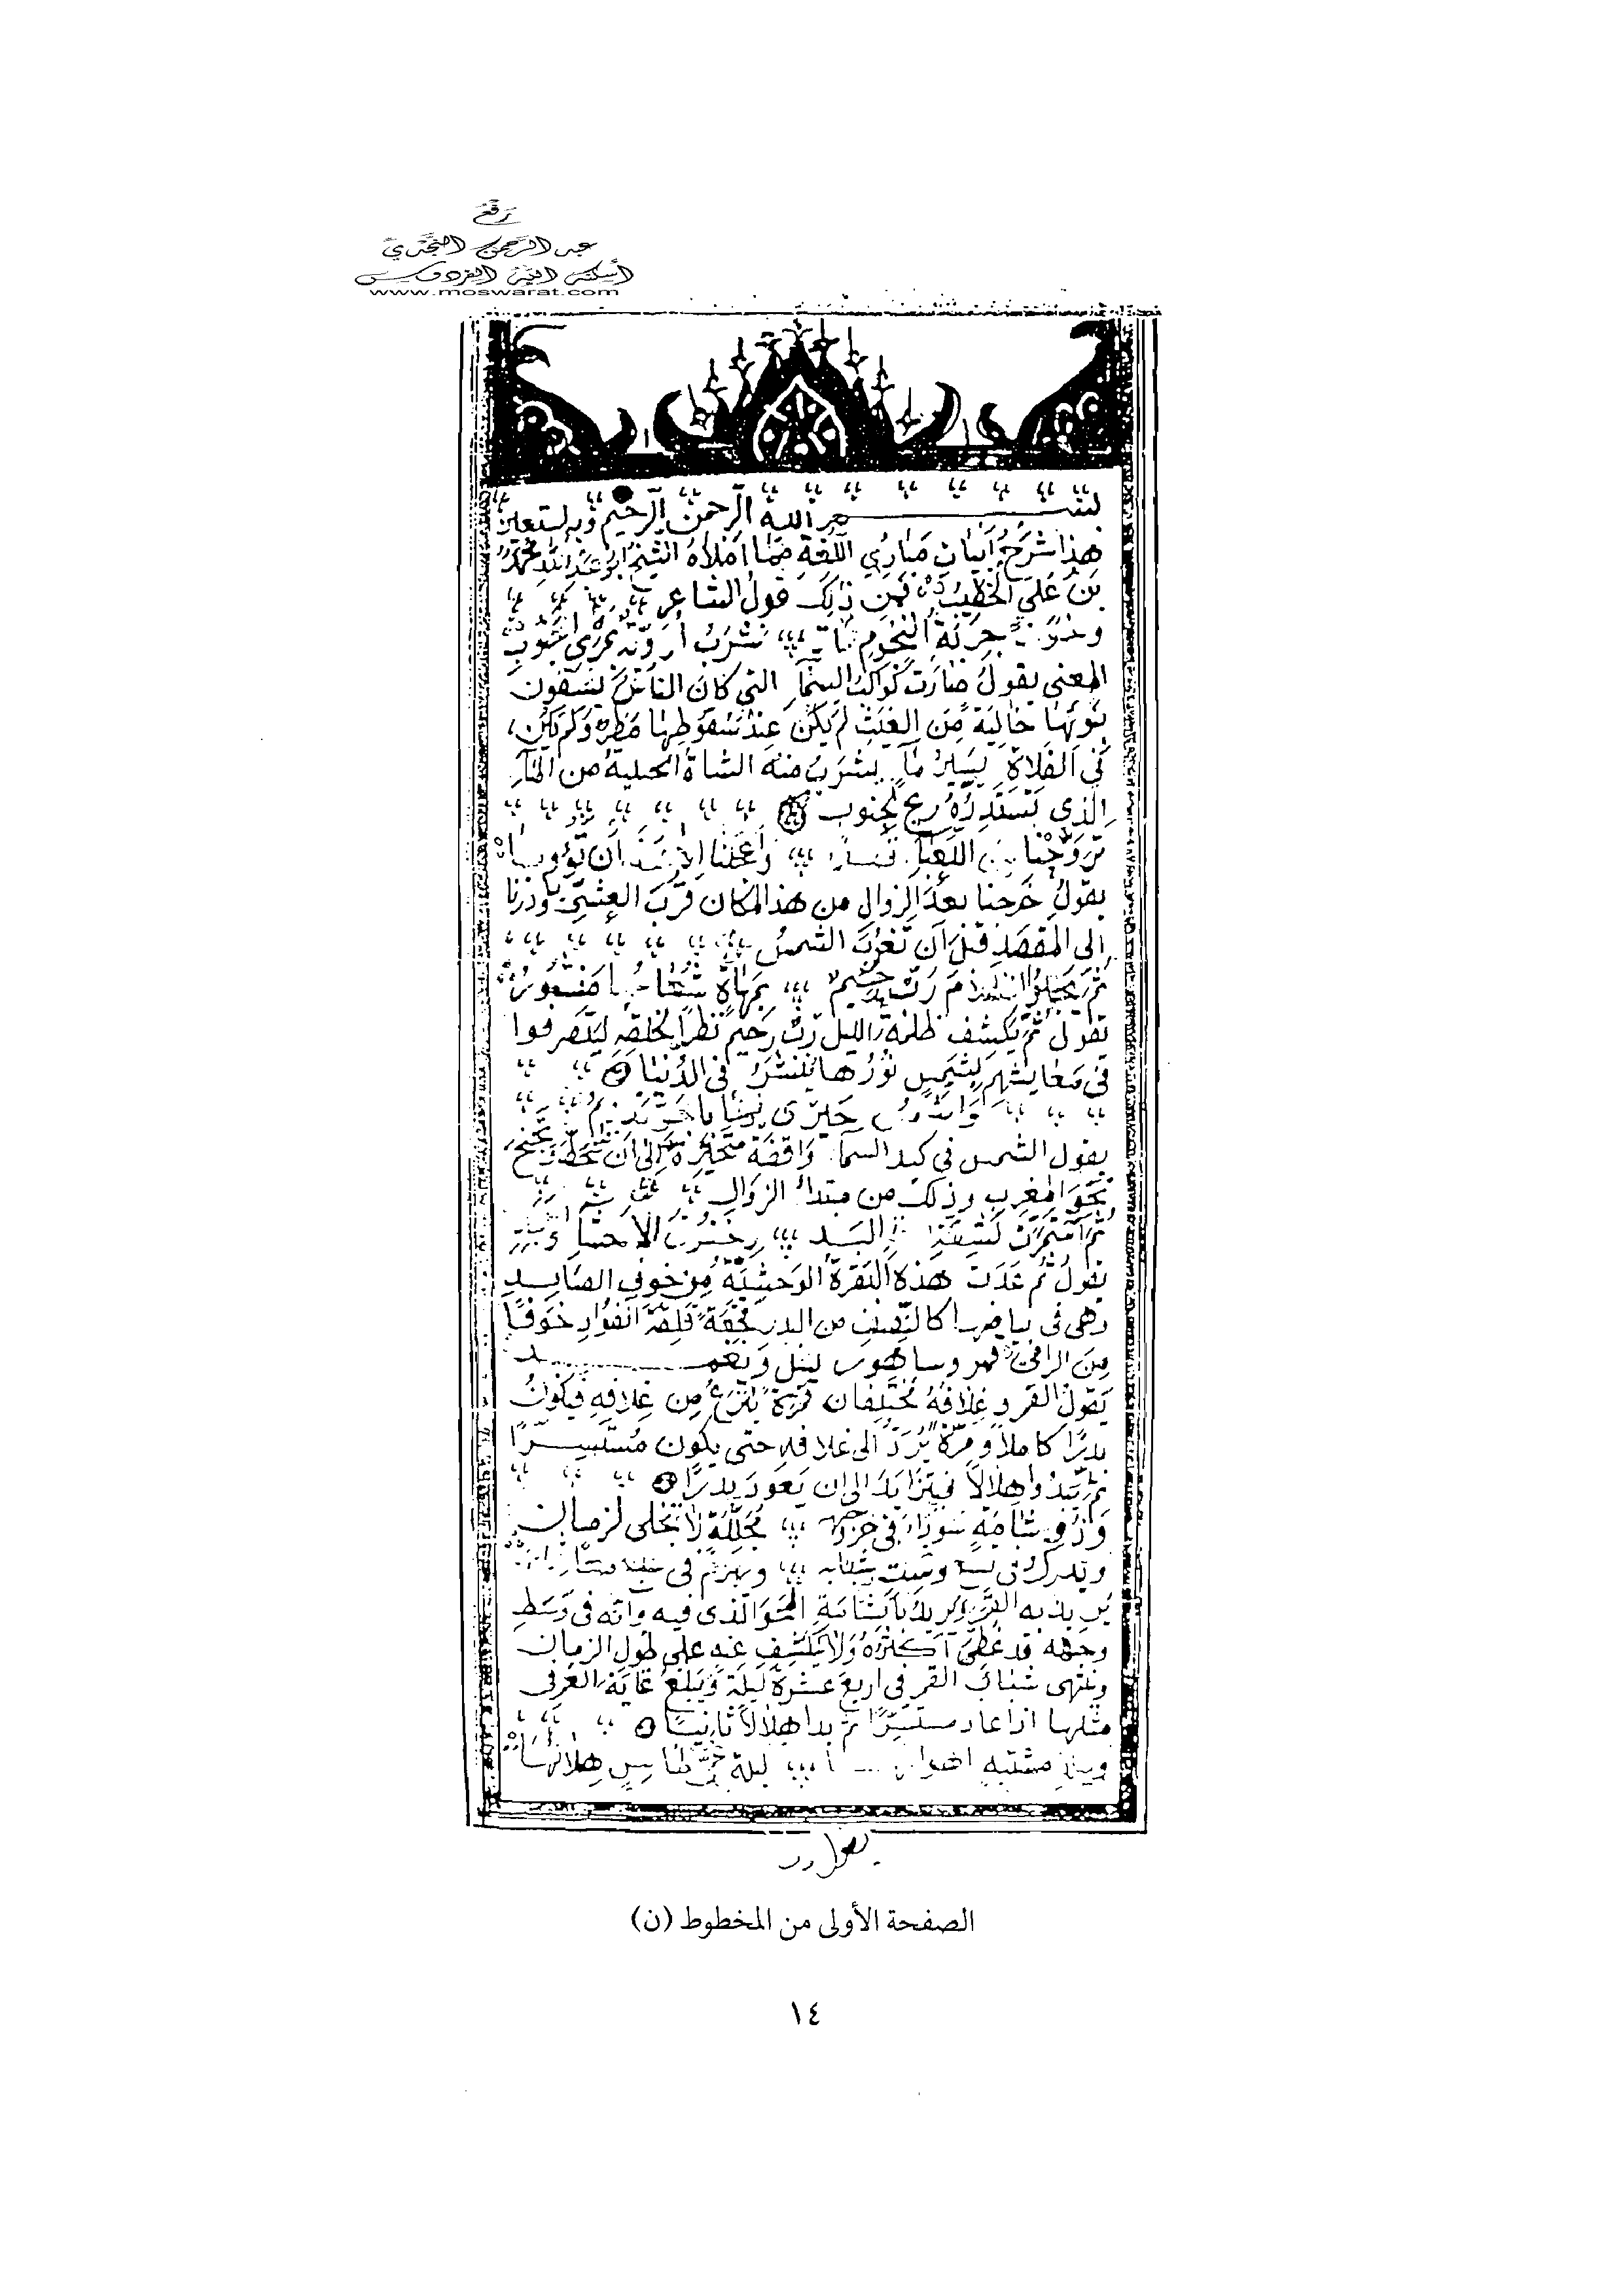 رفع
عبد الرحمن النجدي
أسكنه الله الفردوس
www.moswarat.com
بسم الله الرحمن الرحيم وبه نستعين
هذا شرح أبيات مبادي اللغة مما املاه الشيخ ابو عبد الله محمد
بن علي الخطيب فمن ذلك قول الشاعر
وخوت جربة النجوم نشرب أروية بمري الجنوب
المعنى يقول صارت كواكب السماء التي كان الناس يسقون
بنوئها خالية من الغيث لم يكن عند سقوطها مطر ولم يكن
في الفلاة يسير ماء يشرب منه الشاة الجبلية من الماء
الذي تستدره ريح الجنوب
تروحنا من اللعباء وأعجلنا ان تؤوبا
يقول خرجنا بعد الزوال من هذا المكان قرب العشي بادرنا
الى المقصد قبل أن تغرب الشمس
ثم يجلو الظلام رب رحيم بمهاة شعاعها منشور
يقول ثم يكشف ظلمة الليل رب رحيم نظرا لخلقه ليتصرفوا
في معايشهم بشمس نورها ينتشر في الدنيا
والشمس حيرى
يقول الشمس في كبد السماء واقفة متحيرة الى ان تنحط وتجنح
نحو المغرب وذلك من مبتدأ الزوال
ثم استمرت
يقول ثم غدت هذه البقرة الوحشية من خوف الصايد
وهي في بياضها من الدر قلقة الفؤاد خوفا
من الرامي قمر وساهور يسل ويغمد
يقول القمر وغلافه مختلفان فمرة ينزع من غلافه فيكون
بدرا كاملا ومرة يرد الى غلافه حتى يكون مستسرا
ثم يبدوا هلالا فيتزايد الى ان يعود بدرا
وذي شامة سوداء في حر وجهه مجللة لا تنجلي لزمان
ويدرك في وست شبابه ويهرم في
يريد به القمر ويريد بالشامة المحو الذي فيه وانه في وسط
وجهه قد غطى اكثره ولا ينكشف عنه على طول الزمان
وينتهي شباب القمر في اربع عشرة ليلة ويبلغ غاية الهرم في
مثلها اذا عاد مستسرا ثم بدا هلالا ثانيا
ليلة هلالها
الصفحة الأولى من المخطوط (ن)
١٤